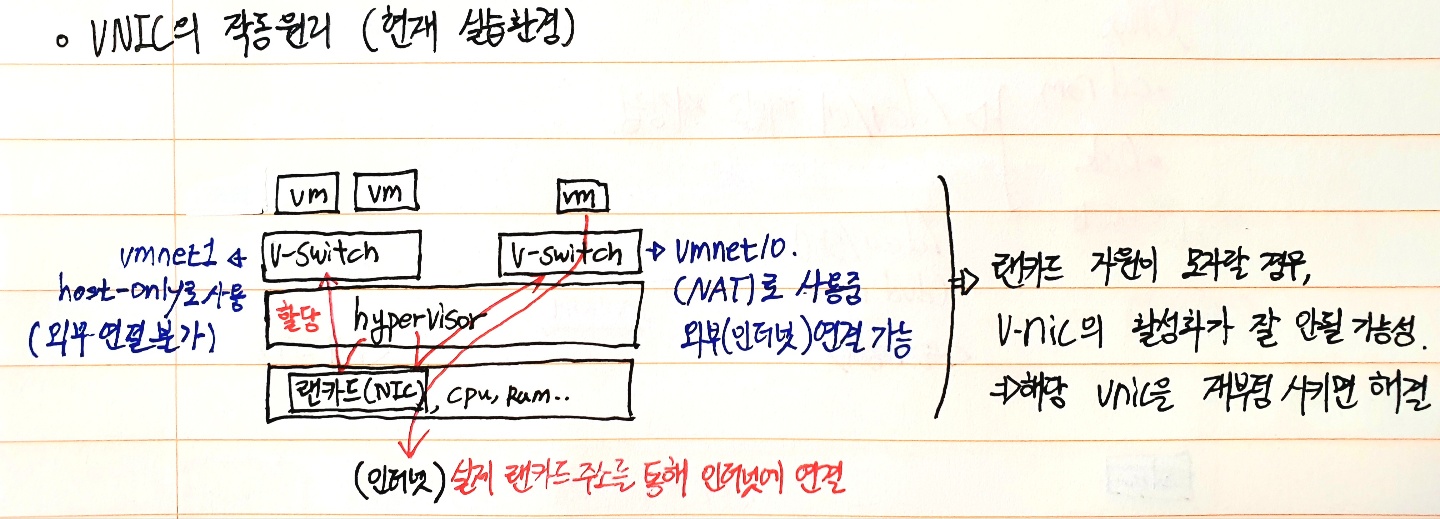 ◦ VNIC의 작동원리 (현재 실습환경)
vm vm vm
vmnet1 V-switch
host-only로 사용
(외부 연결 불가)
V-switch vmnet10.
(NAT)로 사용중
외부(인터넷)연결 가능
할당 hypervisor
랜카드(NIC), cpu, Ram..
(인터넷) 실제 랜카드 주소를 통해 인터넷에 연결
⇒ 랜카드 자원이 모자랄 경우,
V-nic의 활성화가 잘 안될 가능성.
⇒해당 vnic을 재부팅 시키면 해결